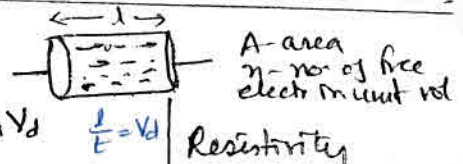 l
A - area
n - no. of free
electr in unit vol
Vd
l/t = Vd
Resistivity